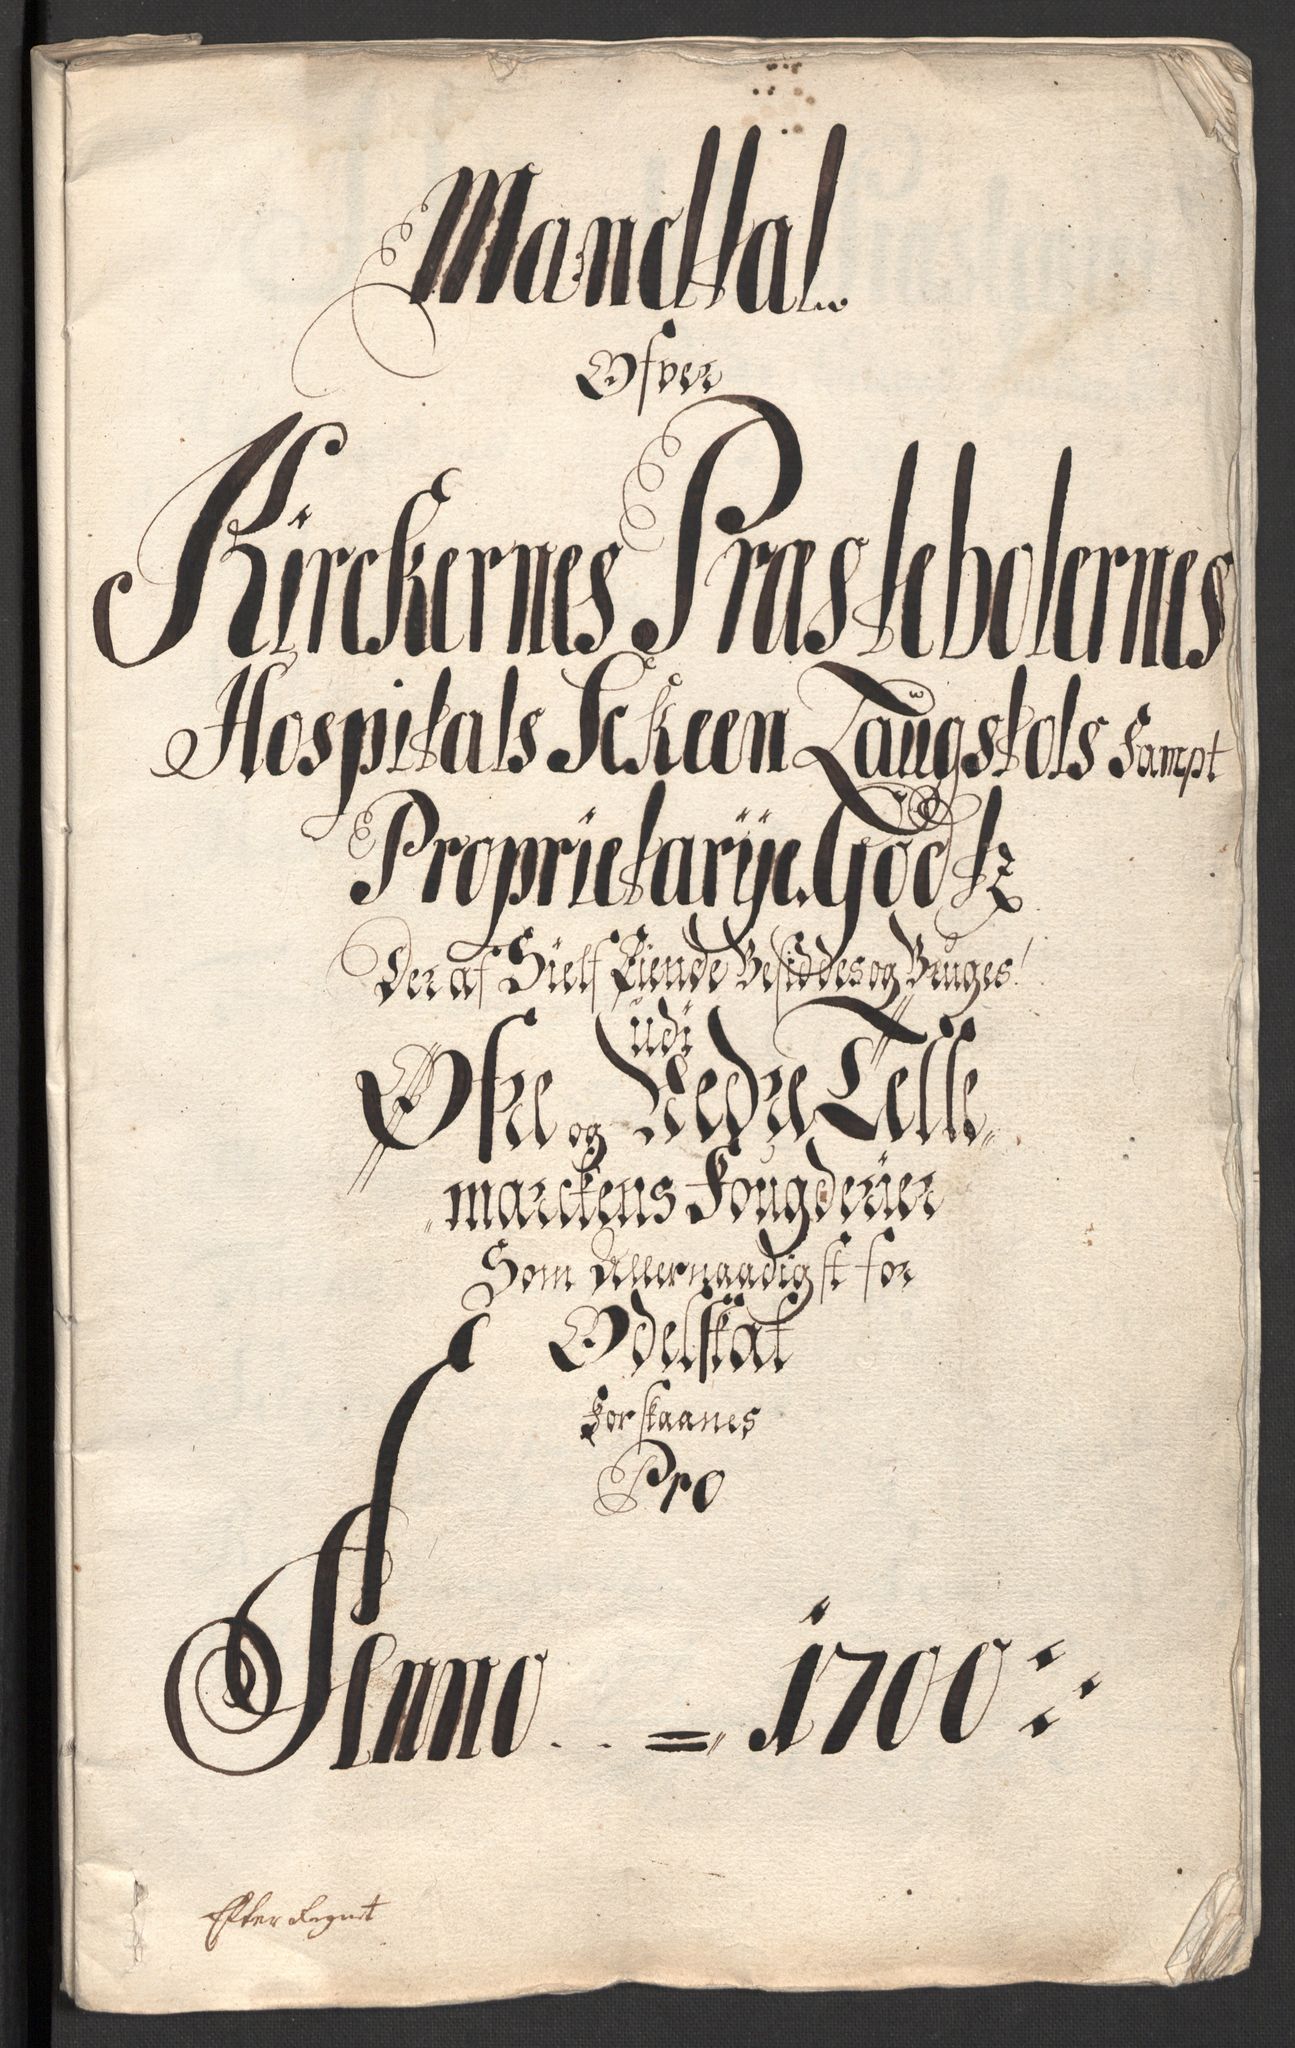 Mandtal
Ofver
Kirckernes Præstebolernes
Hospitals Sckeen Laugstols Sampt
Proprietarije Godtz
Der af Sielf Eiende Besiddes og Bruges
udi
Øfre og Nedre Telle
marckens Fougderier
Som Allernaadigst for
Odelskat
Forskaanes
Pro
Anno 1700
Efter Regnet